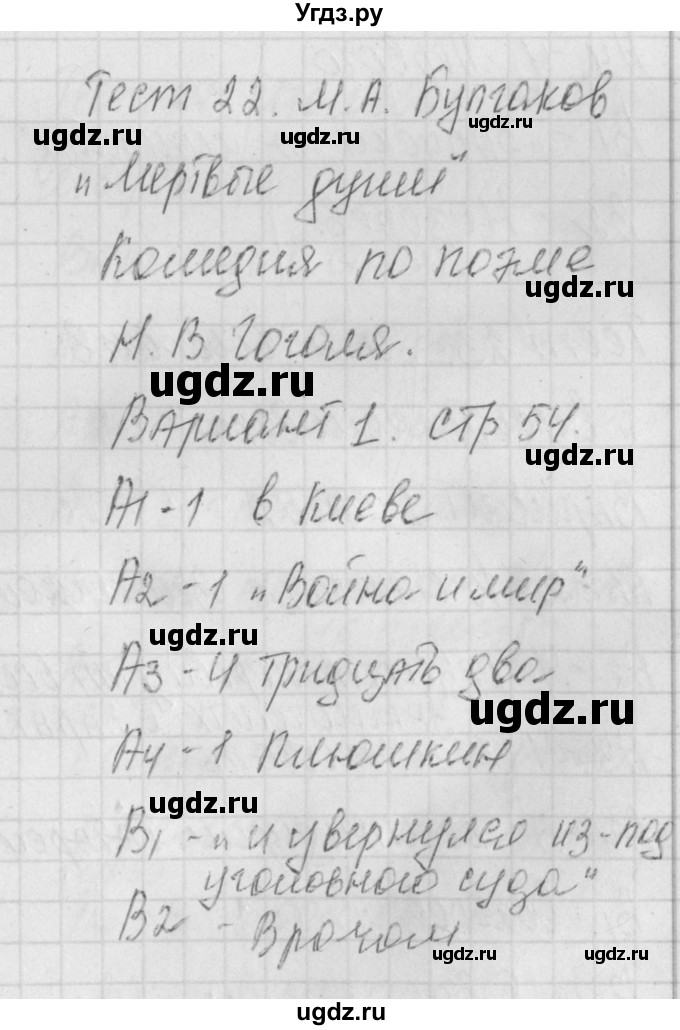 Угдз.ру
Тест 22. М.А. Булгаков
ugdz.ru ugdz.ru ugdz.ru
"Мертвые души"
Комедия по поэме
ugdz.ru
Н.В Гоголя.
ugdz.ru
Вариант 1. стр 54.
ugdz.ru
А1-1 в Киеве
А2-1 "Война и мир"
ugdz.ru
А3-4 тридцать два
ugdz.ru
А4-1 Плюшкин
ugdz.ru
В1 - "и увернулся из-под
уголовного суда"
ugdz.ru
В2 - Врачом
ugdz.ru